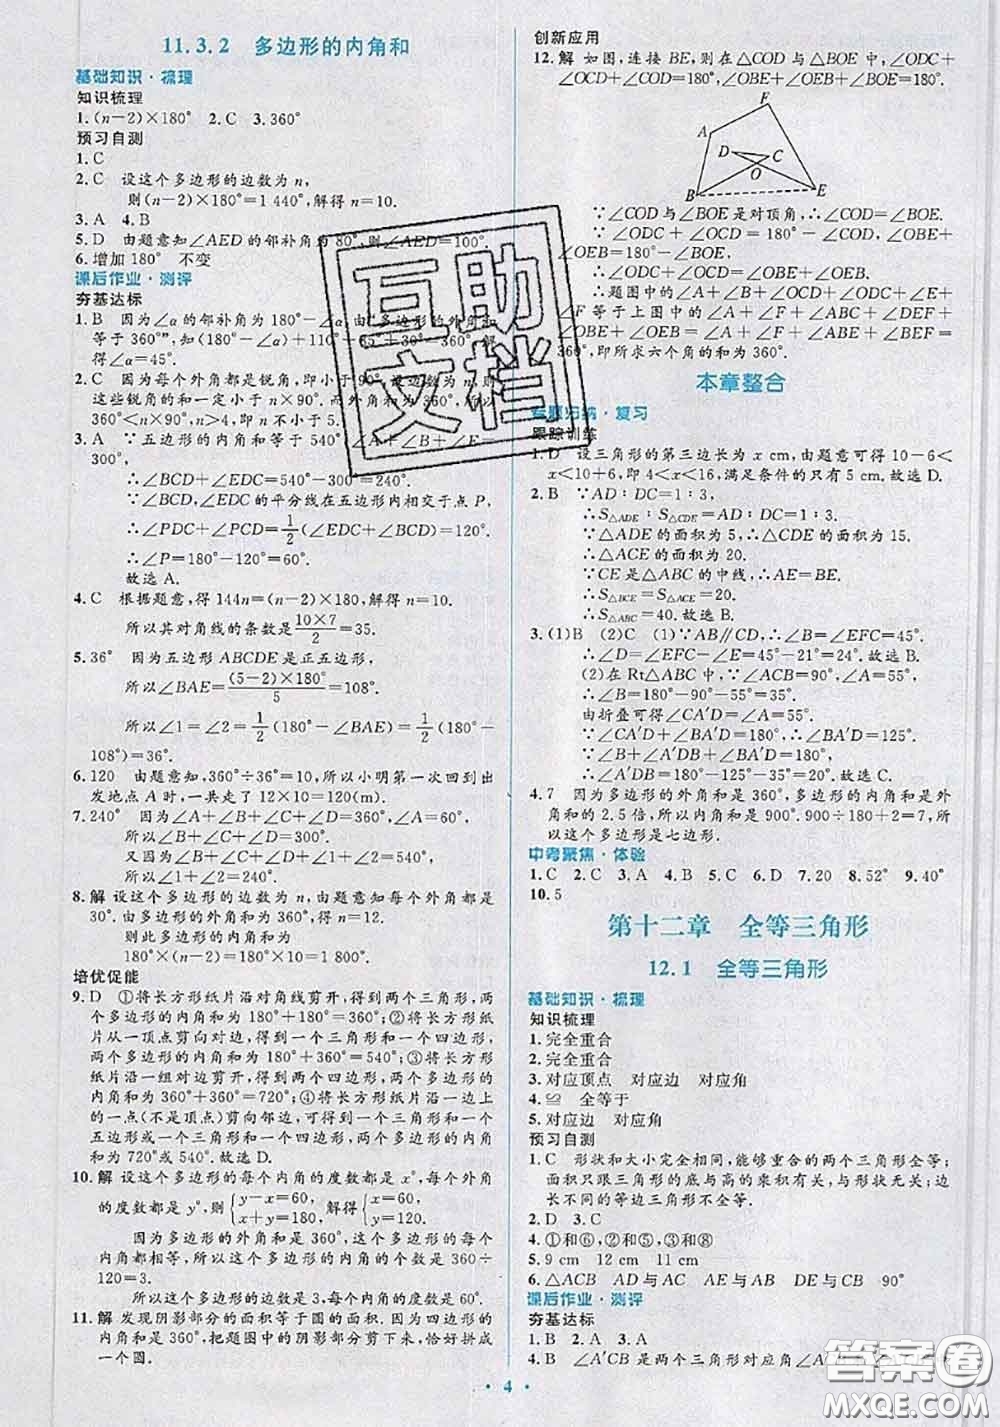 11.3.2 多边形的内角和
基础知识·梳理
知识梳理
1.(n-2)×180° 2.C 3.360°
预习自测
1.C
2.C 设这个多边形的边数为n,
则(n-2)×180°=1 440°,解得n=10.
3.A 4.B
5.D 由题意知∠AED的邻补角为80°,则∠AED=100°.
6.增加180° 不变
课后作业·测评
夯基达标
1.B 因为∠α的邻补角为180°-∠α,由“多边形的外角和
等于360°”,知(180°-∠α)+110°+65°+30°=360°,解
得∠α=45°.
2.C 因为每个外角都是锐角,即小于90°,设边数为n,则
这些锐角的和一定小于n×90°.而外角和为360°,所以
360°<n×90°,n>4,即n不小于5.
3.A ∵五边形的内角和等于540°,∠A+∠B+∠E=
300°,
∴∠BCD+∠EDC=540°-300°=240°.
∵∠BCD,∠EDC的平分线在五边形内相交于点P,
∴∠PDC+∠PCD=1/2(∠EDC+∠BCD)=120°.
∴∠P=180°-120°=60°.
故选A.
4.C 根据题意,得144n=(n-2)×180,解得n=10.
所以其对角线的条数是10×7/2=35.
5.36° 因为五边形ABCDE是正五边形,
所以∠BAE=(5-2)×180°/5=108°.
所以∠1=∠2=1/2(180°-∠BAE)=1/2(180°-
108°)=36°.
6.120 由题意知,360°÷36°=10,所以小明第一次回到出
发地点A时,一共走了12×10=120(m).
7.240° 因为∠A+∠B+∠C=360°,∠A=60°,
所以∠B+∠C+∠D=300°.
又因为∠B+∠C+∠D+∠1+∠2=540°,
所以∠1+∠2=540°-300°=240°.
8.解 设这个多边形的边数为n,由题意知每个外角都是
30°.由多边形的外角和为360°,得n=12.
则此多边形的内角和为
(12-2)×180°=1 800°.
培优促能
9.D ①将长方形纸片沿对角线剪开,得到两个三角形,两
个多边形的内角和为180°+180°=360°;②将长方形纸
片从一顶点剪向对边,得到一个三角形和一个四边形,
两个多边形的内角和为180°+360°=540°;③将长方形
纸片沿一组对边剪开,得到两个四边形,两个多边形的
内角和为360°+360°=720°;④将长方形纸片沿一边上
一点(不是顶点)剪向邻边,得到一个三角形和一个
五边形或一个三角形和一个四边形,两个多边形的内角
和为720°或540°.故选D.
10.解 设这个多边形的每个内角的度数都是x°,每个外角
的度数都是y°,则{y-x=60, x+y=180,解得{x=60, y=120.
因为多边形的外角和是360°,这个多边形的每个内
角都相等,所以这个多边形的内角的个数是360÷
120=3.
所以这个多边形的边数是3,每个内角的度数是60°.
11.解 发现阴影部分的面积等于圆的面积.因为四边形的
内角和是360°,把题图中的阴影部分剪下来,恰好拼成
一个圆.
创新应用
12.解 如图,连接BE,则在△COD与△BOE中,∠ODC+
∠OCD+∠COD=180°,∠OBE+∠OEB+∠BOE=180°.
F
A
D
C
O
B
E
∵∠COD与∠BOE是对顶角,∴∠COD=∠BOE.
∵∠ODC+∠OCD=180°-∠COD,∠OBE+
∠OEB=180°-∠BOE,
∴∠ODC+∠OCD=∠OBE+∠OEB.
∴题图中的∠A+∠ABO+∠ODC+∠OCD+∠E+
∠F等于上图中的∠A+∠F+∠ABO+∠OEF+
∠OBE+∠OEB=∠A+∠F+∠ABE+∠BEF=
360°,即所求六个角的和为360°.
本章整合
专题归纳·复习
跟踪训练
1.D 设三角形的第三边长为x cm,由题意可得10-6<
x<10+6,即4<x<16,满足条件的只有5 cm.故选D.
2.B ∵AD∶DC=1∶3,
∴S△ADE∶S△CDE=AD∶DC=1∶3.
∵△ADE的面积为5,∴△CDE的面积为15.
∴△ACE的面积为20.
∵CE是△ABC的中线,∴AE=BE.
∴S△BCE=S△ACE=20.
∴S△ABC=40.故选B.
3.(1)B (2)C (1)∵AB∥CD,∴∠B=∠EFC=45°.
∴∠D=∠EFC-∠E=45°-21°=24°.故选B.
(2)在Rt△ABC中,∵∠ACB=90°,∠A=55°,
∴∠B=180°-90°-55°=35°.
由折叠可得∠CA′D=∠A=55°.
∵∠CA′D+∠BA′D=180°,∴∠BA′D=125°.
∵∠B+∠A′DB+∠BA′D=180°,
∴∠A′DB=180°-125°-35°=20°.故选C.
4.7 因为多边形的外角和是360°,多边形的内角和是外
角和的2.5倍,所以内角和是900°.900÷180+2=7,所
以这个多边形是七边形.
中考聚焦·体验
1.C 2.C 3.A 4.B 5.C 6.D 7.20 8.52° 9.40°
10.5
第十二章 全等三角形
12.1 全等三角形
基础知识·梳理
知识梳理
1.完全重合
2.完全重合
3.对应顶点 对应边 对应角
4.≌ 全等于
5.对应边 对应角
预习自测
1.C 形状和大小完全相同,能够重合的两个三角形全等;
面积只跟三角形的底与高的乘积有关,与形状无关;边
长不同的等边三角形不全等.
2.D 3.C
4.①和⑥,②和⑤,③和⑧
5.9 cm 12 cm 11 cm
6.△ACB AD与AC AE与AB DE与CB 90°
课后作业·测评
夯基达标
1.B 2.A 3.A
4.B ∠A′CB′是两个三角形对应角
· 4 ·
互助文档
答案圈
MXQE.COM